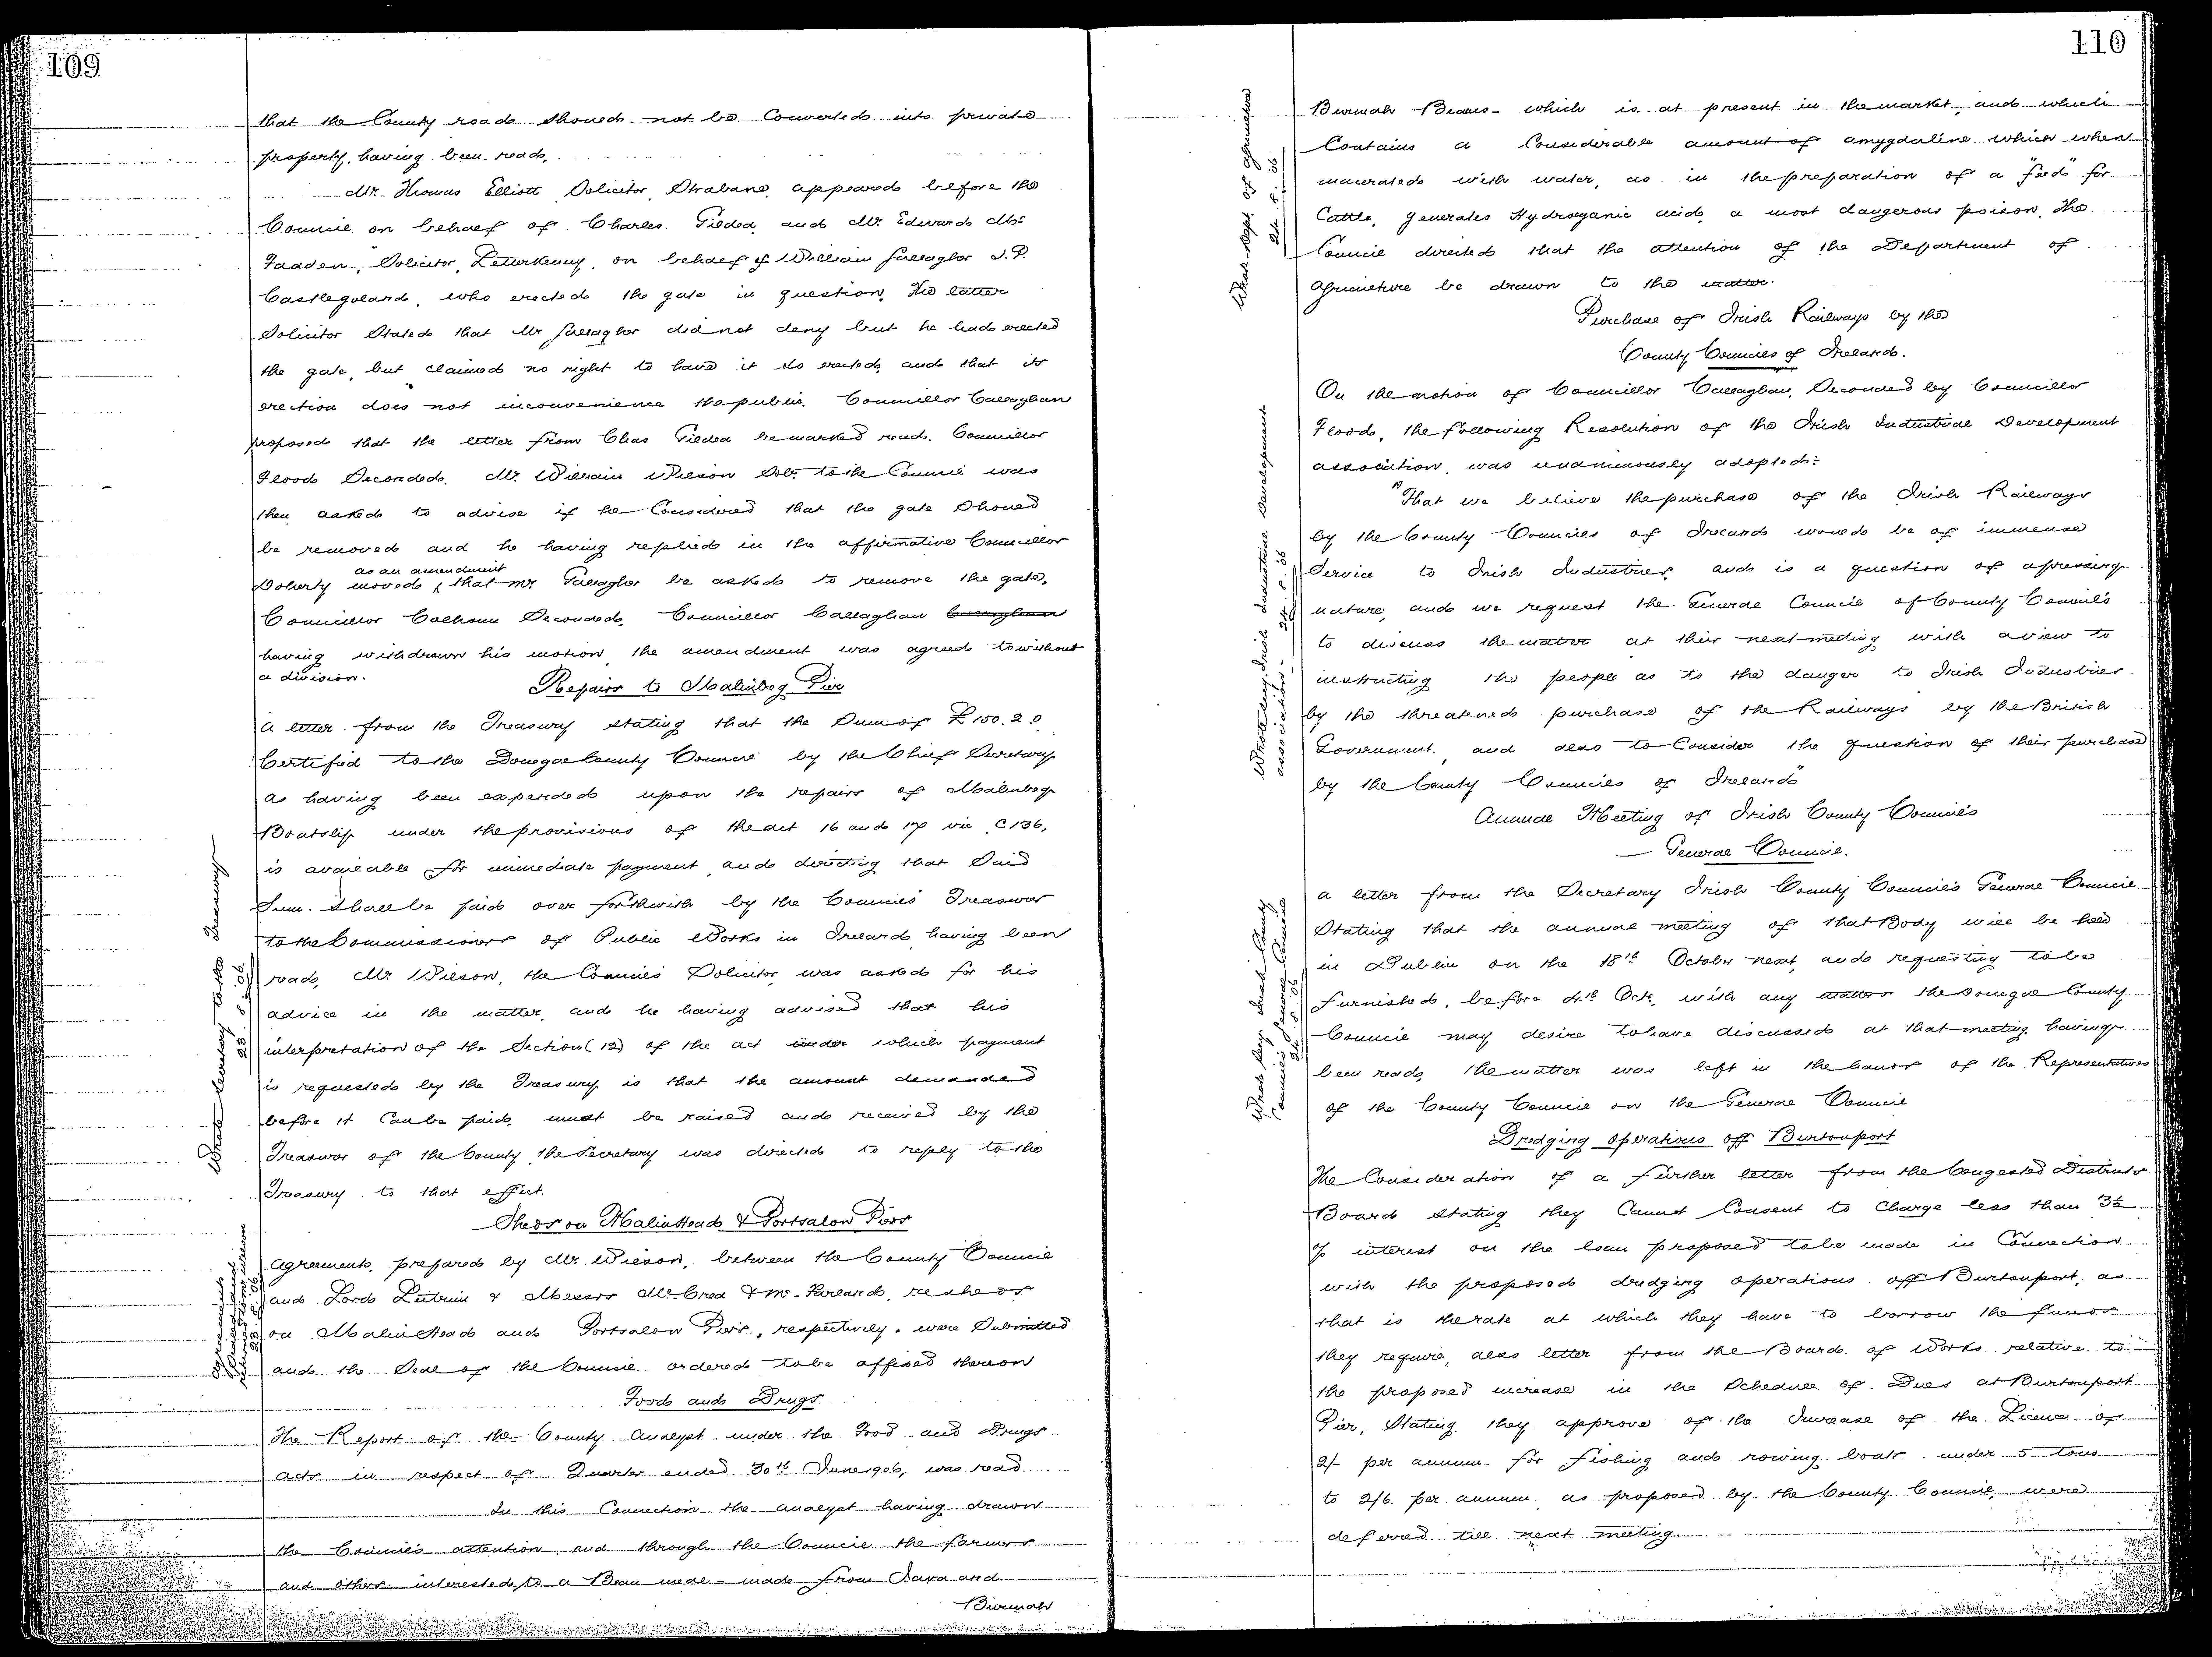 109
that the County road should not be converted into private
property, having been read,
Mr. Thomas Elliott Solicitor, Strabane, appeared before the
Council on behalf of Charles Gildea, and Mr. Edward Mc
Fadden, Solicitor, Letterkenny, on behalf of William Gallagher J.P.
Castlegoland, who erected the gate in question. The latter
Solicitor Stated that Mr Gallagher did not deny but he had erected
the gate, but claimed no right to have it so erected, and that its
erection does not inconvenience the public. Councillor Callaghan
proposed that the letter from Chas Gildea be marked read. Councillor
Flood Seconded. Mr. William Wilson Solr. to the Council was
then asked to advise if he Considered that the gate Should
be removed and he having replied in the affirmative Councillor
as an amendment
Doherty moved that Mr Gallagher be asked to remove the gate.
Councillor Colhoun Seconded. Councillor Callaghan Callaghan
having withdrawn his motion the amendment was agreed to without
a division.
Repairs to Malinbeg Pier
A letter from the Treasury stating that the Sum of £150.2.0
Certified to the Donegal County Council by the Chief Secretary
as having been expended upon the repairs of Malinbeg
Boatslip under the provisions of the act 16 and 17 vic C136,
is available for immediate payment, and directing that Said
Sum shall be paid over forthwith by the Council's Treasurer
to the Commissioners of Public Works in Ireland, having been
read, Mr. Wilson, the Council's Solicitor, was asked for his
advice in the matter, and he having advised that his
interpretation of the Section (12) of the act under which payment
is requested by the Treasury is that the amount demanded
before it Can be paid, must be raised and received by the
Treasurer of the County, the Secretary was directed to reply to the
Treasury to that effect.
Wrote Secretary to the Treasury
23.8.06
Sheds on Malin Head & Portsalon Piers
Agreements, prepared by Mr. Wilson, between the County Council
and Lord Leitrim & Messrs McCrea & McFarland, re sheds
on Malin Head and Portsalon Piers, respectively, were Submitted
and the Seal of the Council ordered to be affixed thereon
Agreements
Sealed and
returned to Mr Wilson
23.8.06
Food and Drugs
The Report of the County Analyst under the Food and Drugs
Acts in respect of Quarter ended 30th June 1906, was read
In this Connection the analyst having drawn
the Council's attention and through the Council the farmers
and others interested, to a Bean meal - made from Java and
Burmah
110
Burmah Beans - which is at present in the market, and which
Contains a Considerable amount of amygdaline which when
macerated with water, as in the preparation of a "feed" for
Cattle, generates Hydrocyanic acid, a most dangerous poison, the
Council directed that the attention of the Department of
Agriculture be drawn to the matter.
Wrote Dept of Agriculture
24.8.06
Purchase of Irish Railways by the
County Councils of Ireland.
On the motion of Councillor Callaghan, Seconded by Councillor
Flood, the following Resolution of the Irish Industrial Development
association, was unanimously adopted:
"That we believe the purchase of the Irish Railways
by the County Councils of Ireland would be of immense
Service to Irish Industries, and is a question of a pressing
nature, and we request the General Council of County Councils
to discuss the matter at their next meeting with a view to
instructing the people as to the danger to Irish Industries
by the threatened purchase of the Railways by the British
Government, and also to Consider the question of their purchase
by the County Councils of Ireland"
Wrote Secy. Irish Industrial Development
association - 24.8.06
Annual Meeting of Irish County Councils
General Council.
A letter from the Secretary Irish County Councils General Council
Stating that the annual meeting of that Body will be held
in Dublin on the 18th October next, and requesting to be
furnished, before 4th Oct, with any matters the Donegal County
Council may desire to have discussed at that meeting having
been read, the matter was left in the hands of the Representatives
of the County Council on the General Council
Wrote Secy. Irish County
Councils General Council
24.8.06
Dredging operations off Burtonport
The Consideration of a further letter from the Congested Districts
Board stating they Cannot Consent to Charge less than 3½
% interest on the loan proposed to be made in Connection
with the proposed dredging operations off Burtonport, as
that is the rate at which they have to borrow the funds
they require, also letter from the Board of Works relative to
the proposed increase in the Schedule of Dues at Burtonport
Pier, Stating they approve of the Increase of the Licence of
2/- per annum for fishing and rowing boats under 5 tons
to 2/6 per annum, as proposed by the County Council, were
deferred till next meeting